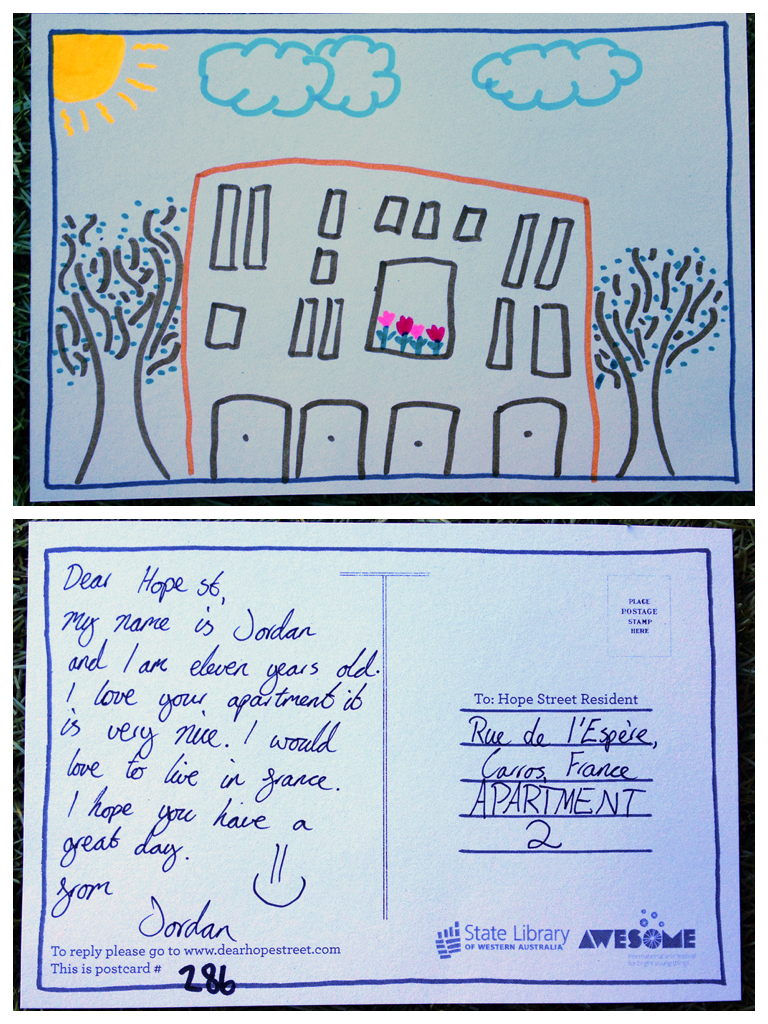 Dear Hope st,
my name is Jordan
and I am eleven years old.
I love your apartment it
is very nice. I would
love to live in france.
I hope you have a
great day.
from
Jordan
To reply please go to www.dearhopestreet.com
This is postcard # 286
PLACE
POSTAGE
STAMP
HERE
To: Hope Street Resident
Rue de l'Espère,
Carros, France
APARTMENT
2
State Library
OF WESTERN AUSTRALIA
AWESOME